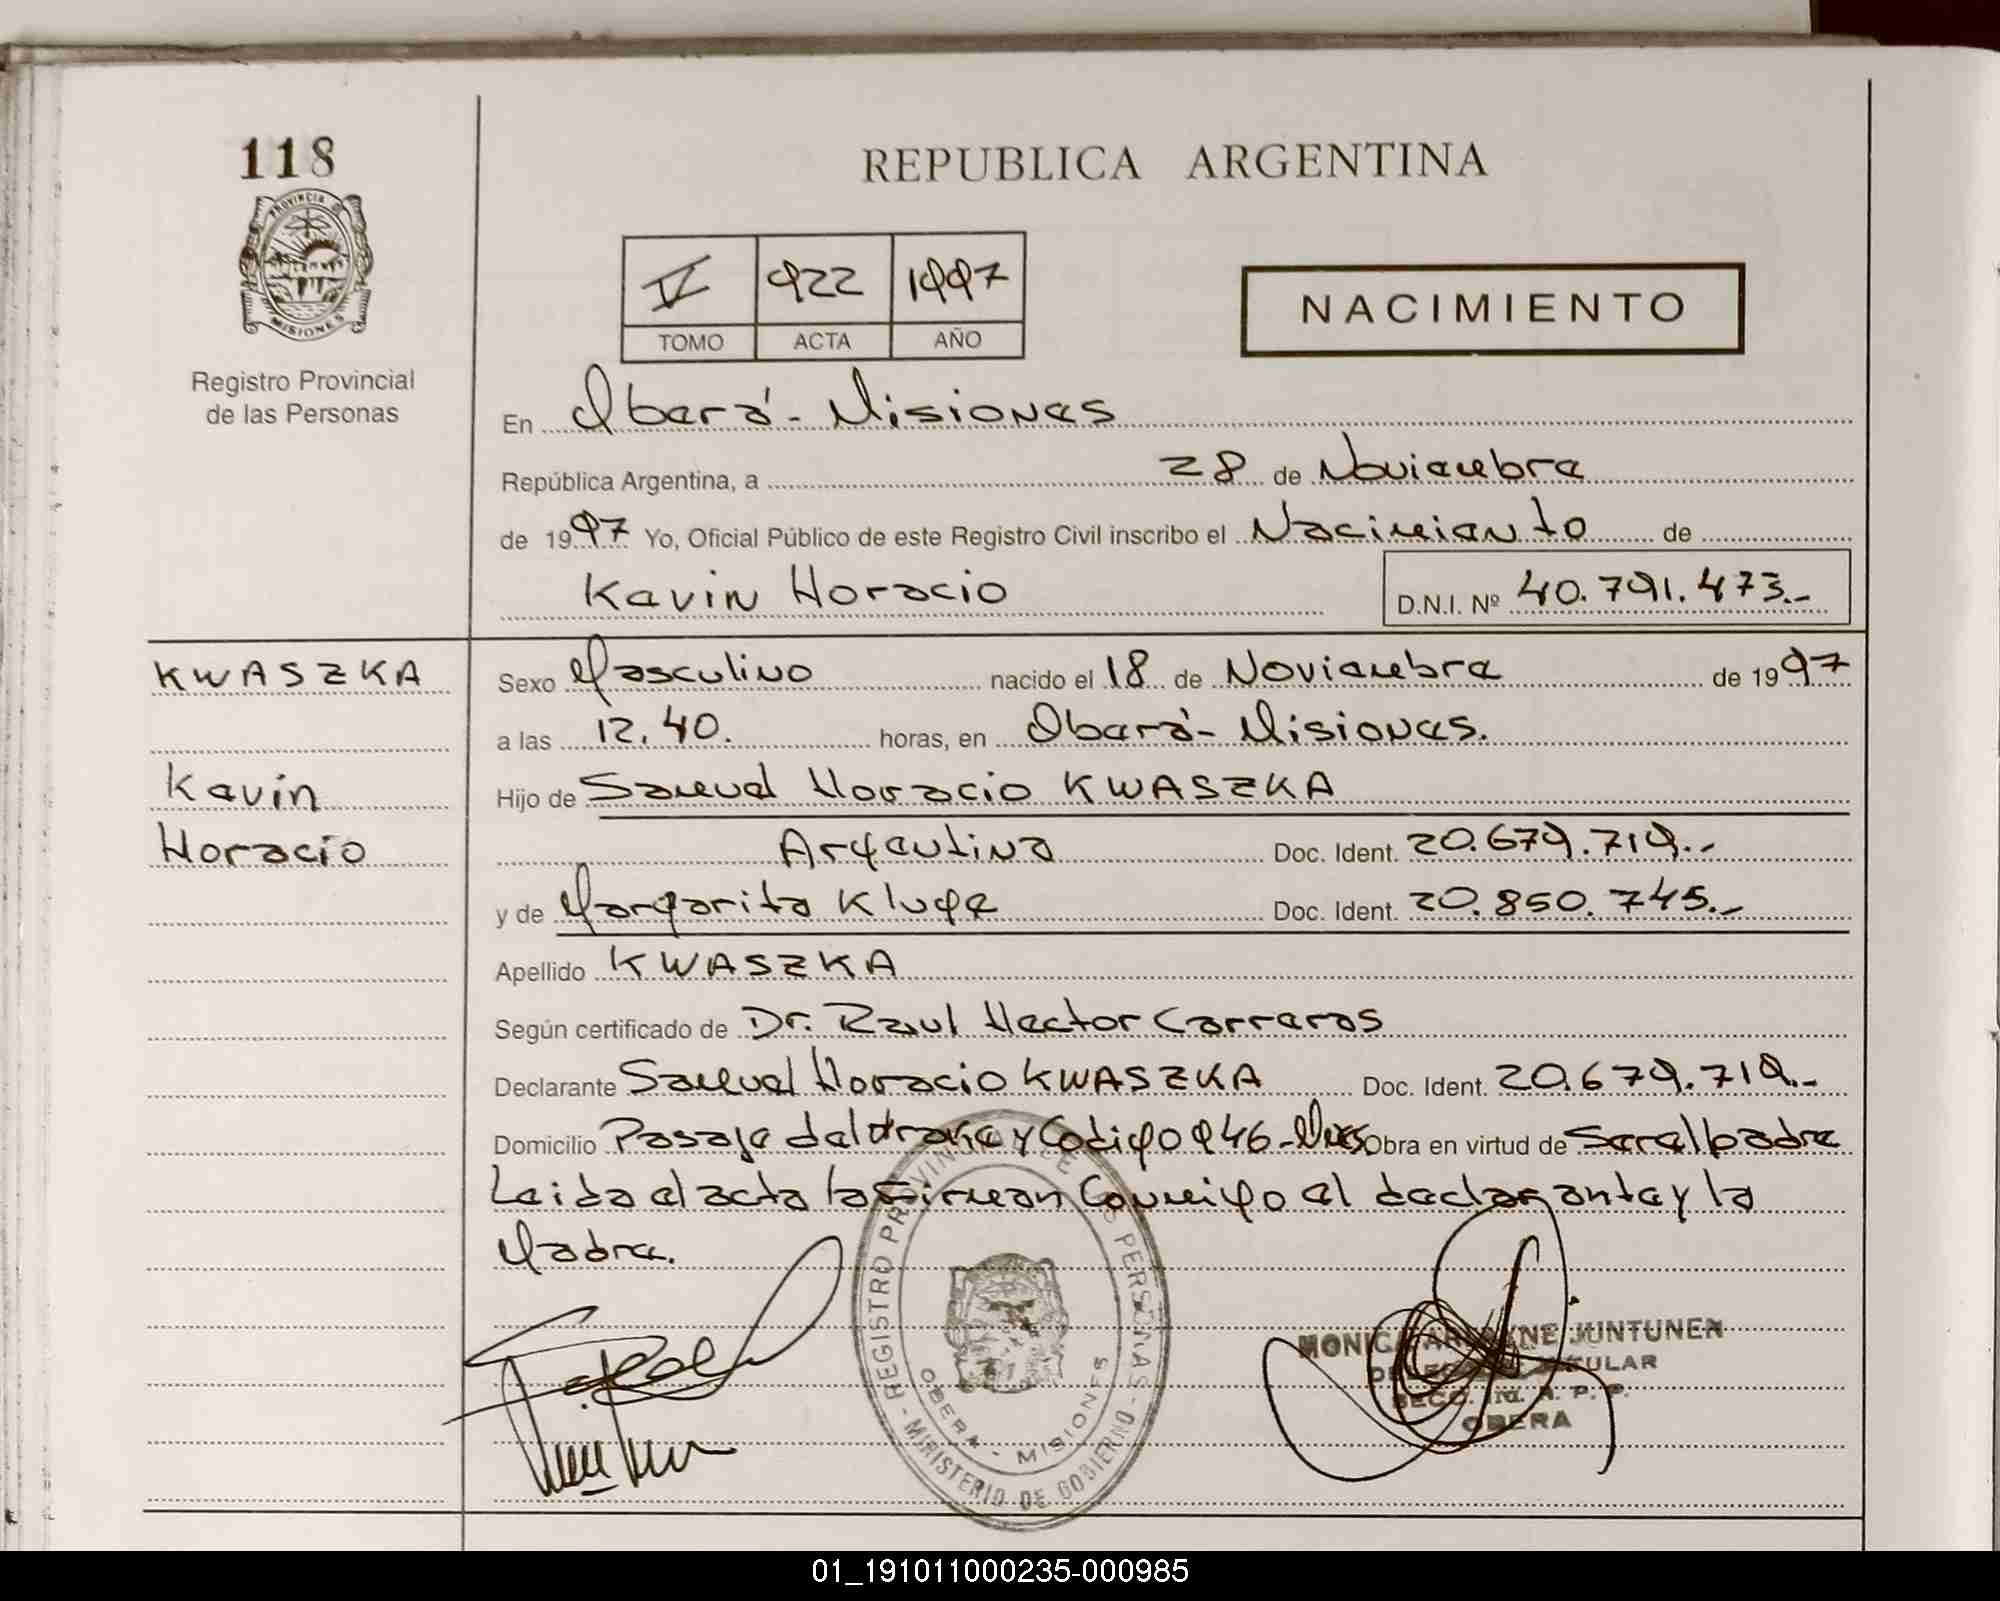 118
REPUBLICA ARGENTINA
PROVINCIA D MISIONES
IV 922 1997
TOMO ACTA AÑO
NACIMIENTO
Registro Provincial
de las Personas
En Oberá - Misiones
República Argentina, a 28 de Noviembre
de 1997 Yo, Oficial Público de este Registro Civil inscribo el Nacimiento de
Kevin Horacio D.N.I. Nº 40.791.473.-
KWASZKA
Sexo Masculino nacido el 18 de Noviembre de 1997
a las 12.40. horas, en Oberá - Misiones.
Kevin
Hijo de Samuel Horacio KWASZKA
Horacio
Argentina Doc. Ident. 20.679.719.-
y de Margarita Kluge Doc. Ident. 20.850.745.-
Apellido KWASZKA
Según certificado de Dr. Raul Hector Carreras
Declarante Samuel Horacio KWASZKA Doc. Ident. 20.679.719.-
Domicilio Pasaje del y 946 - Obra en virtud de Ser el padre
Leida el acta la firman Conmigo el declarante y la
Madre.
REGISTRO PROVINCIAL DE LAS PERSONAS - MINISTERIO DE GOBIERNO -
OBERA - MISIONES
MONICA JUNTUNEN
R. P. P.
OBERA
01_191011000235-000985